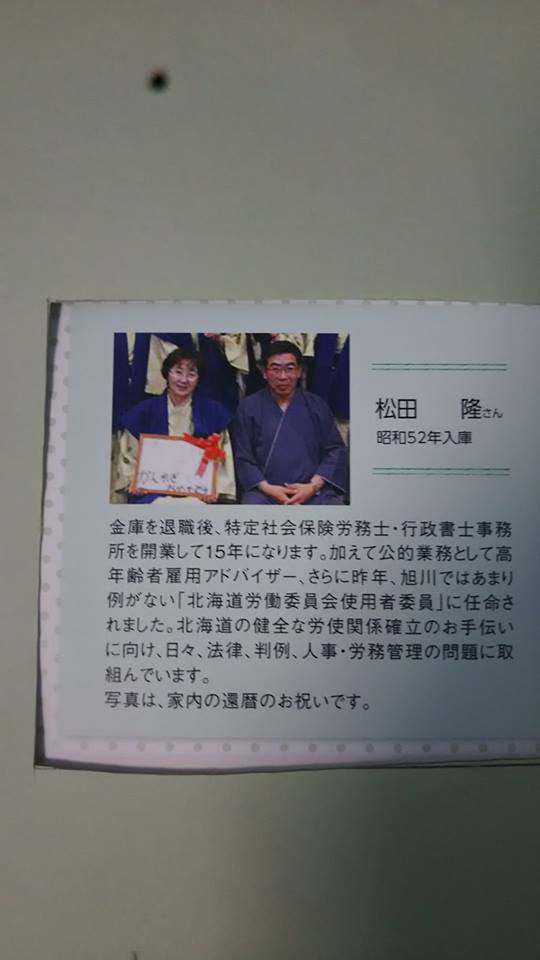 松田 隆さん
昭和52年入庫
金庫を退職後、特定社会保険労務士・行政書士事務
所を開業して15年になります。加えて公的業務として高
年齢者雇用アドバイザー、さらに昨年、旭川ではあまり
例がない「北海道労働委員会使用者委員」に任命さ
れました。北海道の健全な労使関係確立のお手伝い
に向け、日々、法律、判例、人事・労務管理の問題に取
組んでいます。
写真は、家内の還暦のお祝いです。